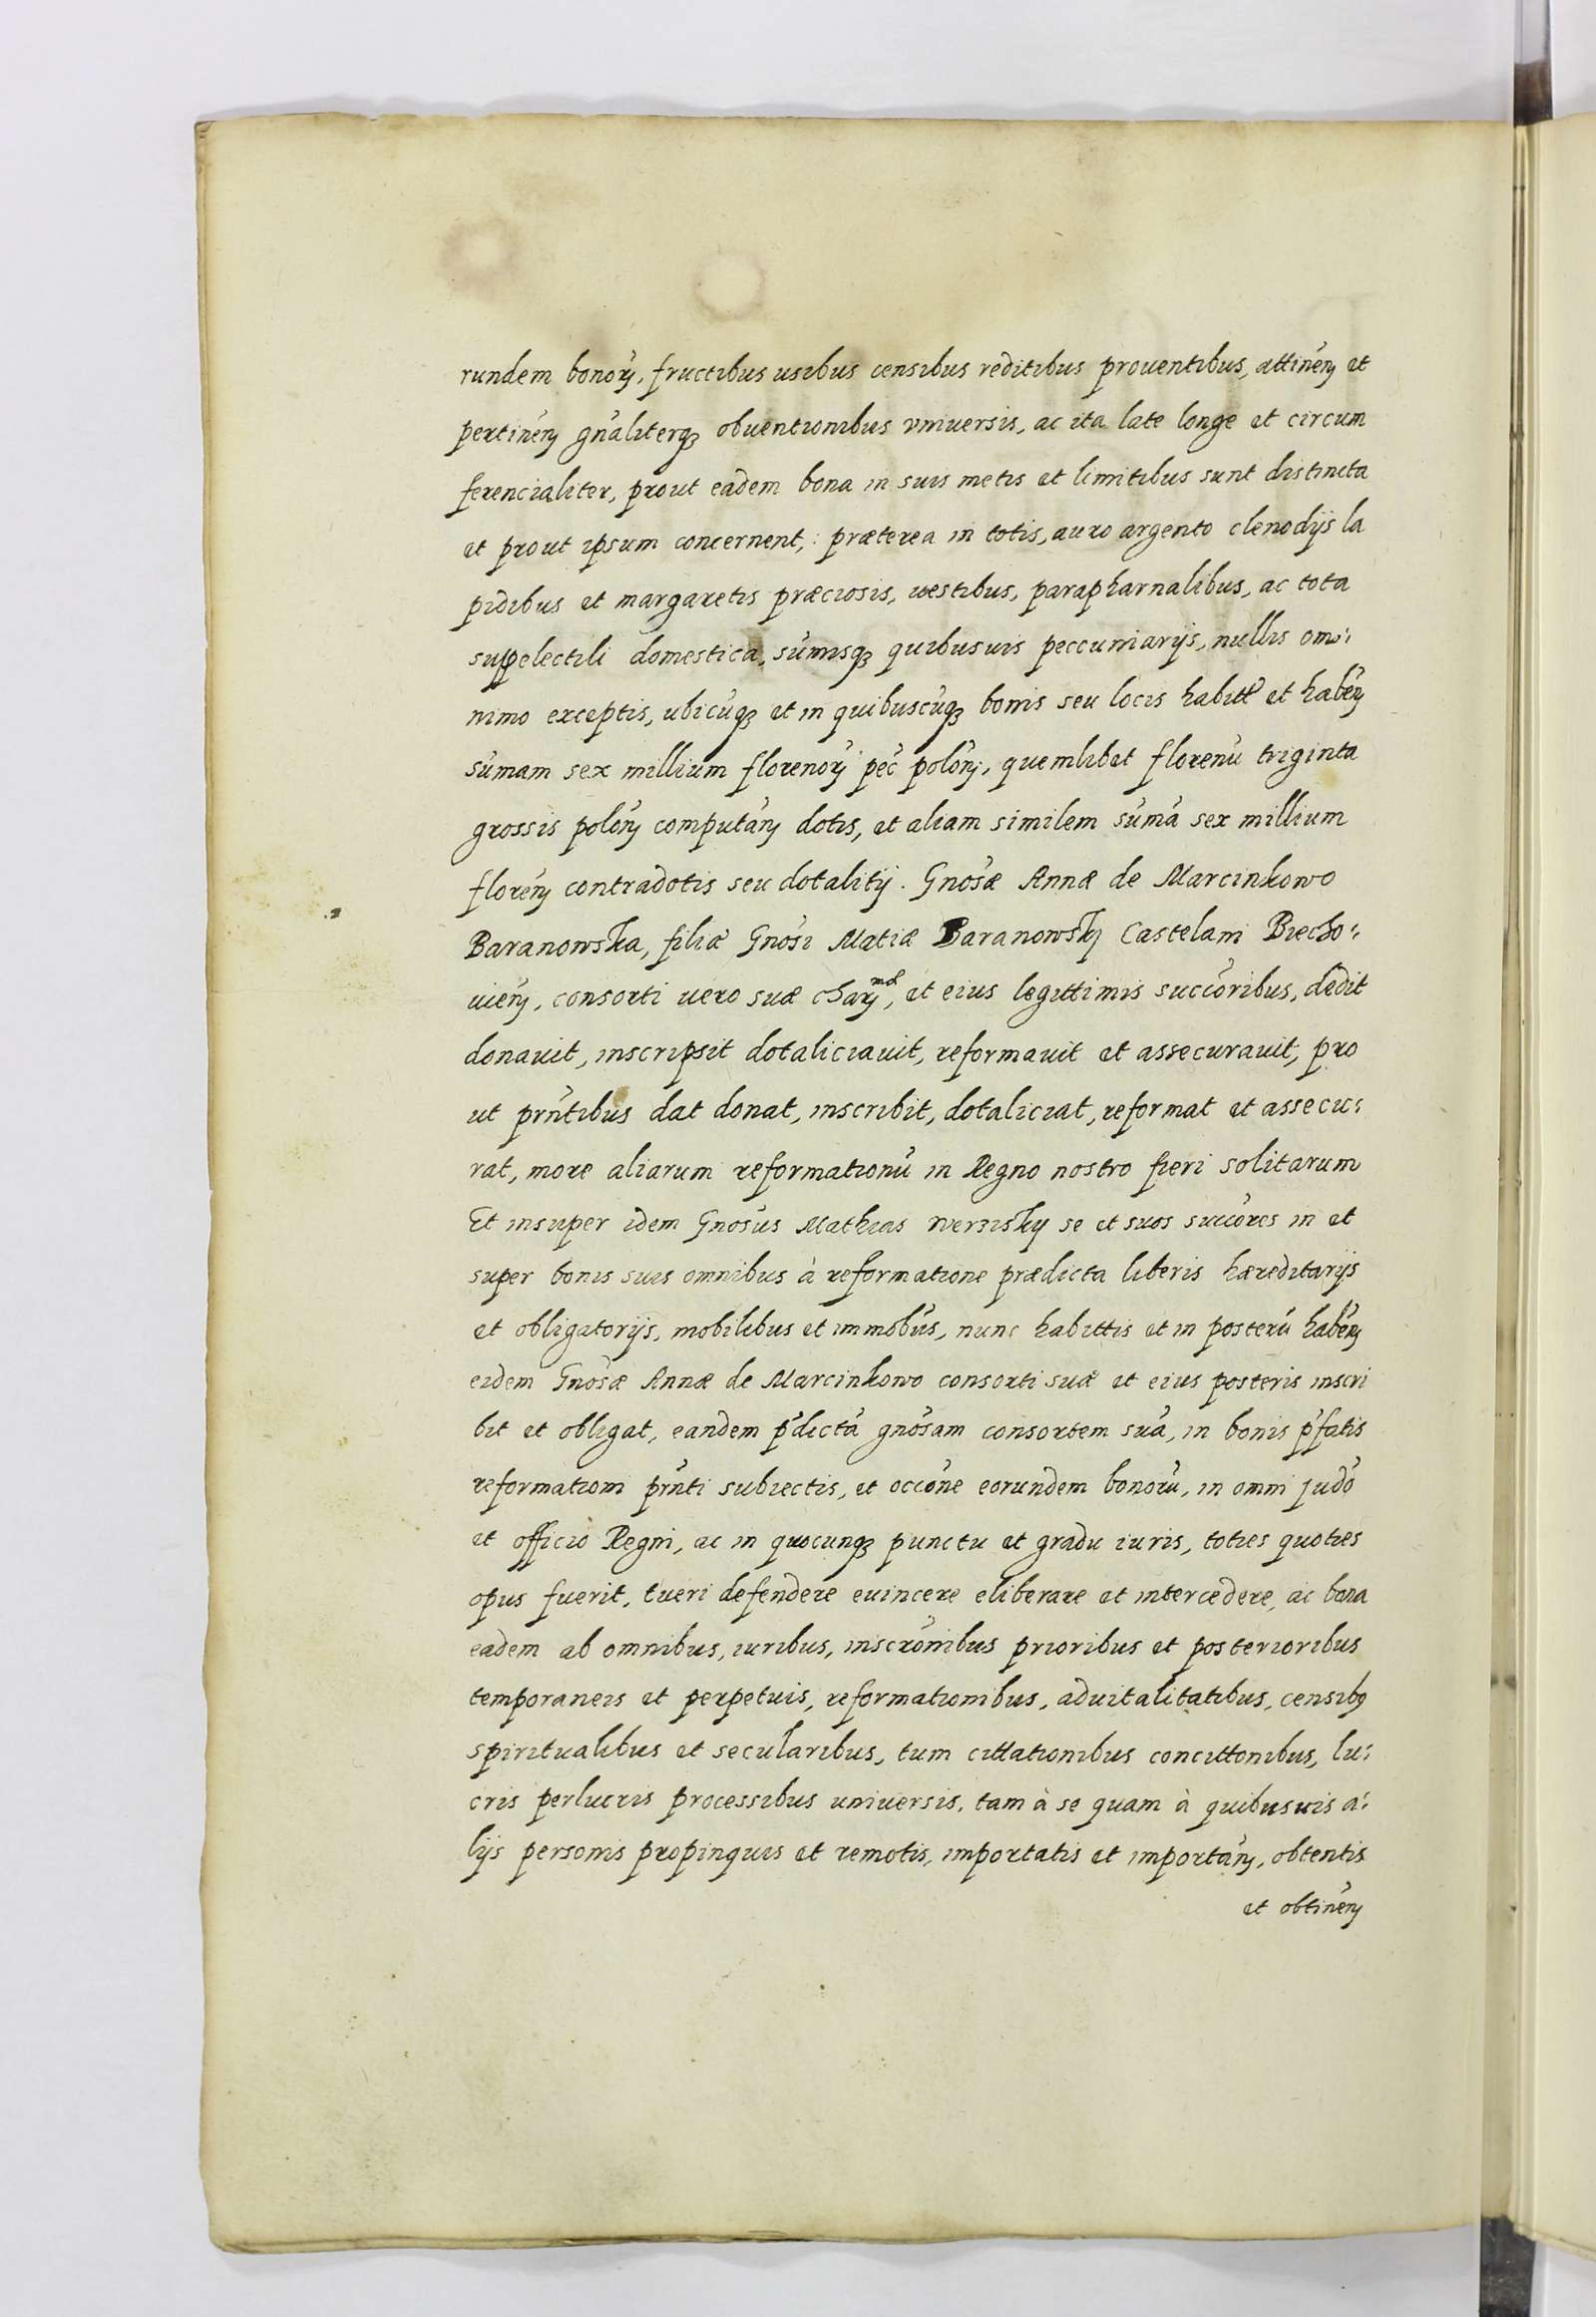 rundem bonorꝫ, fructibus usibus censibus reditibus prouentibus, attinen̄ et
pertinen̄ gn̄aliterqꝫ obuentionibus vniuersis, ac ita late longe et circum
ferencialiter, prout eadem bona in suis metis et limitibus sunt distincta
et prout ipsum concernent, : præterea in totis, auro argento clenodijs la
pidibus et margaretis præciosis, vestibus, parapharnalibus, ac tota
suppelectili domestica, sūmisqꝫ quibusuis peccuniarijs, nullis om̄i:
nimo exceptis, ubicūqꝫ et in quibuscūqꝫ bonis seu locis habitt̄ et haben̄
sūmam sex millium florenorꝫ pec̄ polōn, quemlibet florenū triginta
grossis polōn computan̄ dotis, et aliam similem sūmā sex millium
floren̄ contradotis seu dotalitij. Gnōsæ Annæ de Marcinkowo
Baranowska, filiæ Gnōsi Matiæ Baranowskӯ Castelani Biecho:
uien̄, consorti uero suæ charꝫ^mæ, et eius legittimis succōribus, dedit
donauit, inscripsit dotaliciauit, reformauit et assecurauit, pro
ut prn̄tibus dat donat, inscribit, dotaliciat, reformat et assecu:
rat, more aliarum reformationū in Regno nostro fieri solitarum
Et insuper idem Gnōsus Mathias wersisky se et suos succōres in et
super bonis suis omnibus à reformatione prædicta liberis hæreditarijs
et obligatorijs, mobilibus et immobūs, nunc habittis et in posterū haben̄
eidem Gnōsæ Annæ de Marcinkowo consorti suæ et eius posteris inscri
bit et obligat, eandem p̄dictā gnōsam consortem suā, in bonis p̄fatis
reformationi prn̄ti subiectis, et occōne eorundem bonorū, in omni judō
et officio Regni, ac in quocunqꝫ punctu et gradu iuris, toties quoties
opus fuerit, tueri defendere euincere eliberare et intercedere, ac bona
eadem ab omnibus, iuribus, inscrōnibus prioribus et posterioribus
temporaneis et perpetuis, reformationibus, aduitalitatibus, censibꝰ
spiritualibus et secularibus, tum cittationibus concittonibus, lu:
cris perlucris processibus uniuersis, tam à se quam à quibusuis a:
lijs personis propinquis et remotis, importatis et importan̄, obtentis
et obtinen̄